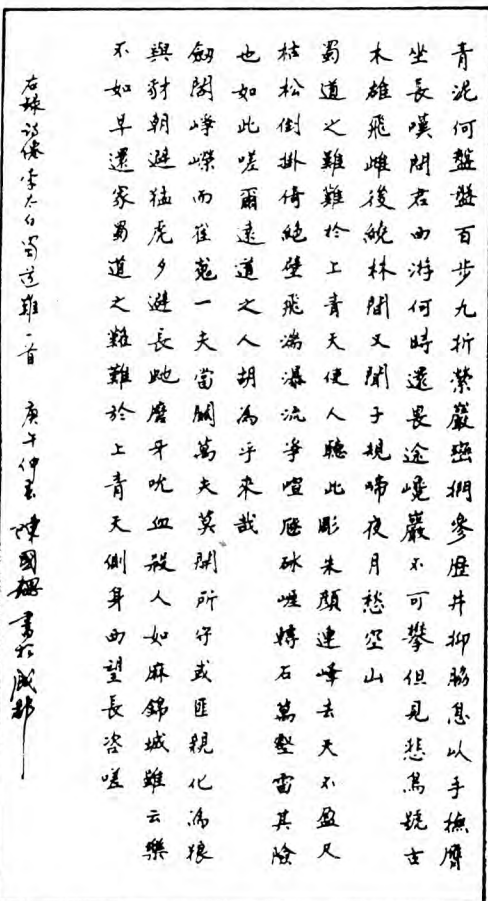 青泥何盤盤百步九折縈巖巒捫參歷井仰脇息以手撫膺
坐長嘆問君西游何時還畏途巉巖不可攀但見悲鳥號古
木雄飛雌後繞林間又聞子規啼夜月愁空山
蜀道之難難於上青天使人聽此彫朱顏連峰去天不盈尺
枯松倒掛倚絕壁飛湍瀑流爭喧豗砯崖轉石萬壑雷其險
也如此嗟爾遠道之人胡為乎來哉
劍閣崢嶸而崔嵬一夫當關萬夫莫開所守或匪親化為狼
與豺朝避猛虎夕避長蛇磨牙吮血殺人如麻錦城雖云樂
不如早還家蜀道之難難於上青天側身西望長咨嗟
右錄詩僊李太白蜀道難一首 庚午仲春 陳國書於成都